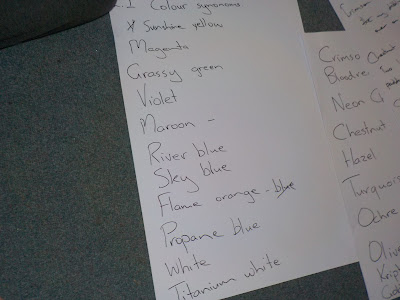 1 Colour synonoms
* Sunshine yellow
Magenta
Grassy green
Violet
Maroon -
River blue
Sky blue
Flame orange - blue
Propane blue
White
Titanium white
Crimso
Neon G
Chestnut
Hazel
Turquois
Ochre
Olive